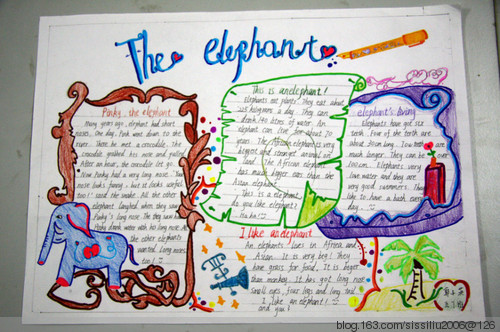 The elephant
Pinky the elephant
Many years ago, elephant had short
noses. One day, Pink went down to the
river. There he met a crocodile. The
crocodile grabbed his nose and pulled
After an hour, the crocodile let go.
Now Pinky had a very long nose. "Your
nose looks funny, but it looks useful
too!" said the snake. All the other
elephant laughed when they saw
Pinky's long nose. Then they saw how
Pinky drank water with his long nose. All
the other elephants
wanted long noses
too!
This is an elephant!
Elephants eat plants. They eat about
225 kilograms a day. They can
drink 140 litres of water. An
elephant can live for about 70
years. The African elephant is very
biggest and stronger animal on
land. The African elephant has
much bigger ears than the
Asian elephant.
This is a elephant,
do you like elephant?
Ha ha!
elephant's living
Elephants have got six
teeth. Four of the teeth are
about 30cm long. Two teeth are
much longer. They can be over
long. Elephants very
love water and they are
very good swimmers. They
like to have a bath every
day.
I like an elephant
An elephants lives in Africa and
Asian. It is very big! They
have grass for food. It is bigger
than monkey. It has got long nose
small eyes, four legs and long tail.
I like an elephant!
and you?
blog.163.com/sissiliu2006@126